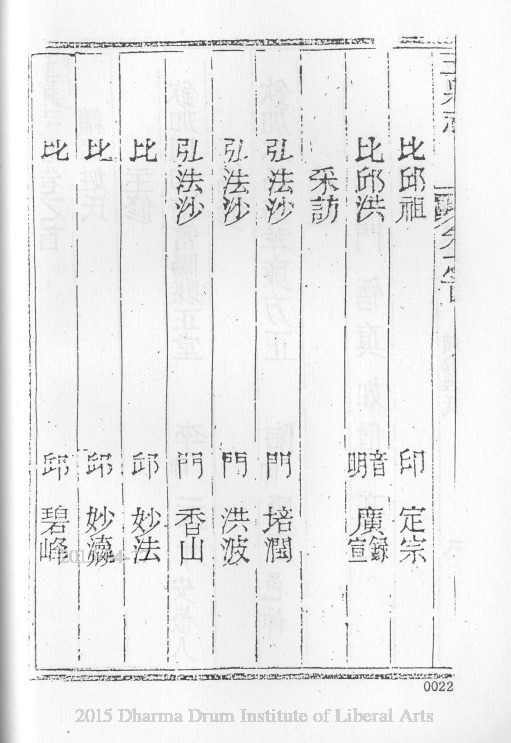 比邱祖印定宗
比邱洪音明廣録宣
采訪
弘法沙門培潤
弘法沙門洪波
弘法沙門香山
比邱妙法
比邱妙
比邱碧峰
0022
2015 Dharma Drum Institute of Liberal Arts